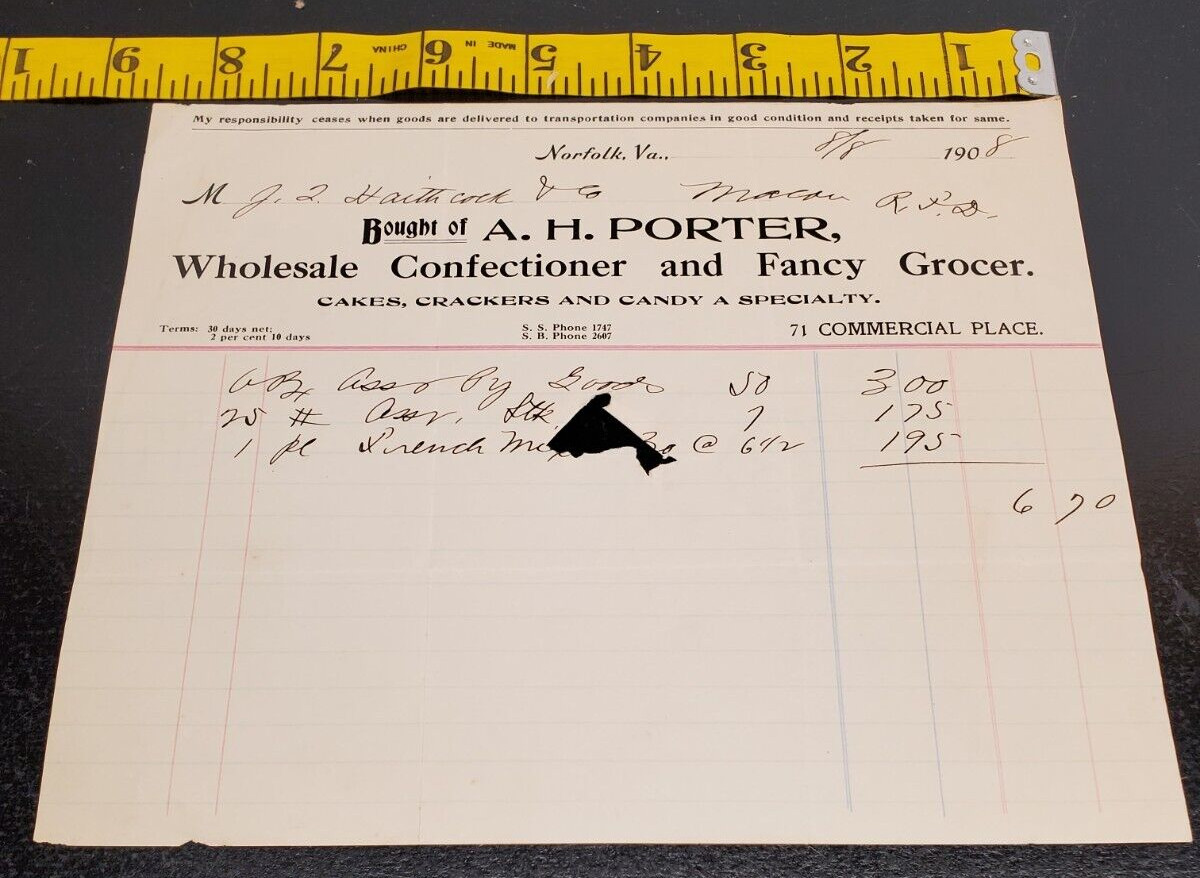 1 9 8 7 CHINA 6 MADE IN 5 4 3 2 1
My responsibility ceases when goods are delivered to transportation companies in good condition and receipts taken for same.
Norfolk, Va., 8/8 1908
M J. T. Haithcock & Co Macon R.F.D.
Bought of A. H. PORTER,
Wholesale Confectioner and Fancy Grocer.
CAKES, CRACKERS AND CANDY A SPECIALTY.
Terms: 30 days net;
2 per cent 10 days
S. S. Phone 1747
S. B. Phone 2607
71 COMMERCIAL PLACE.
6 Bx Asst Py Goods 50 3 00
25 # Asst. Stk 7 1 75
1 pl French Mix 30 @ 6 1/2 1 95
6 70